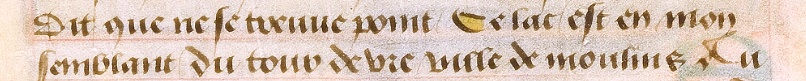 Dit que ne se treuue point Ce lac est en mon
semblant du tour de vre ville de moulins Au